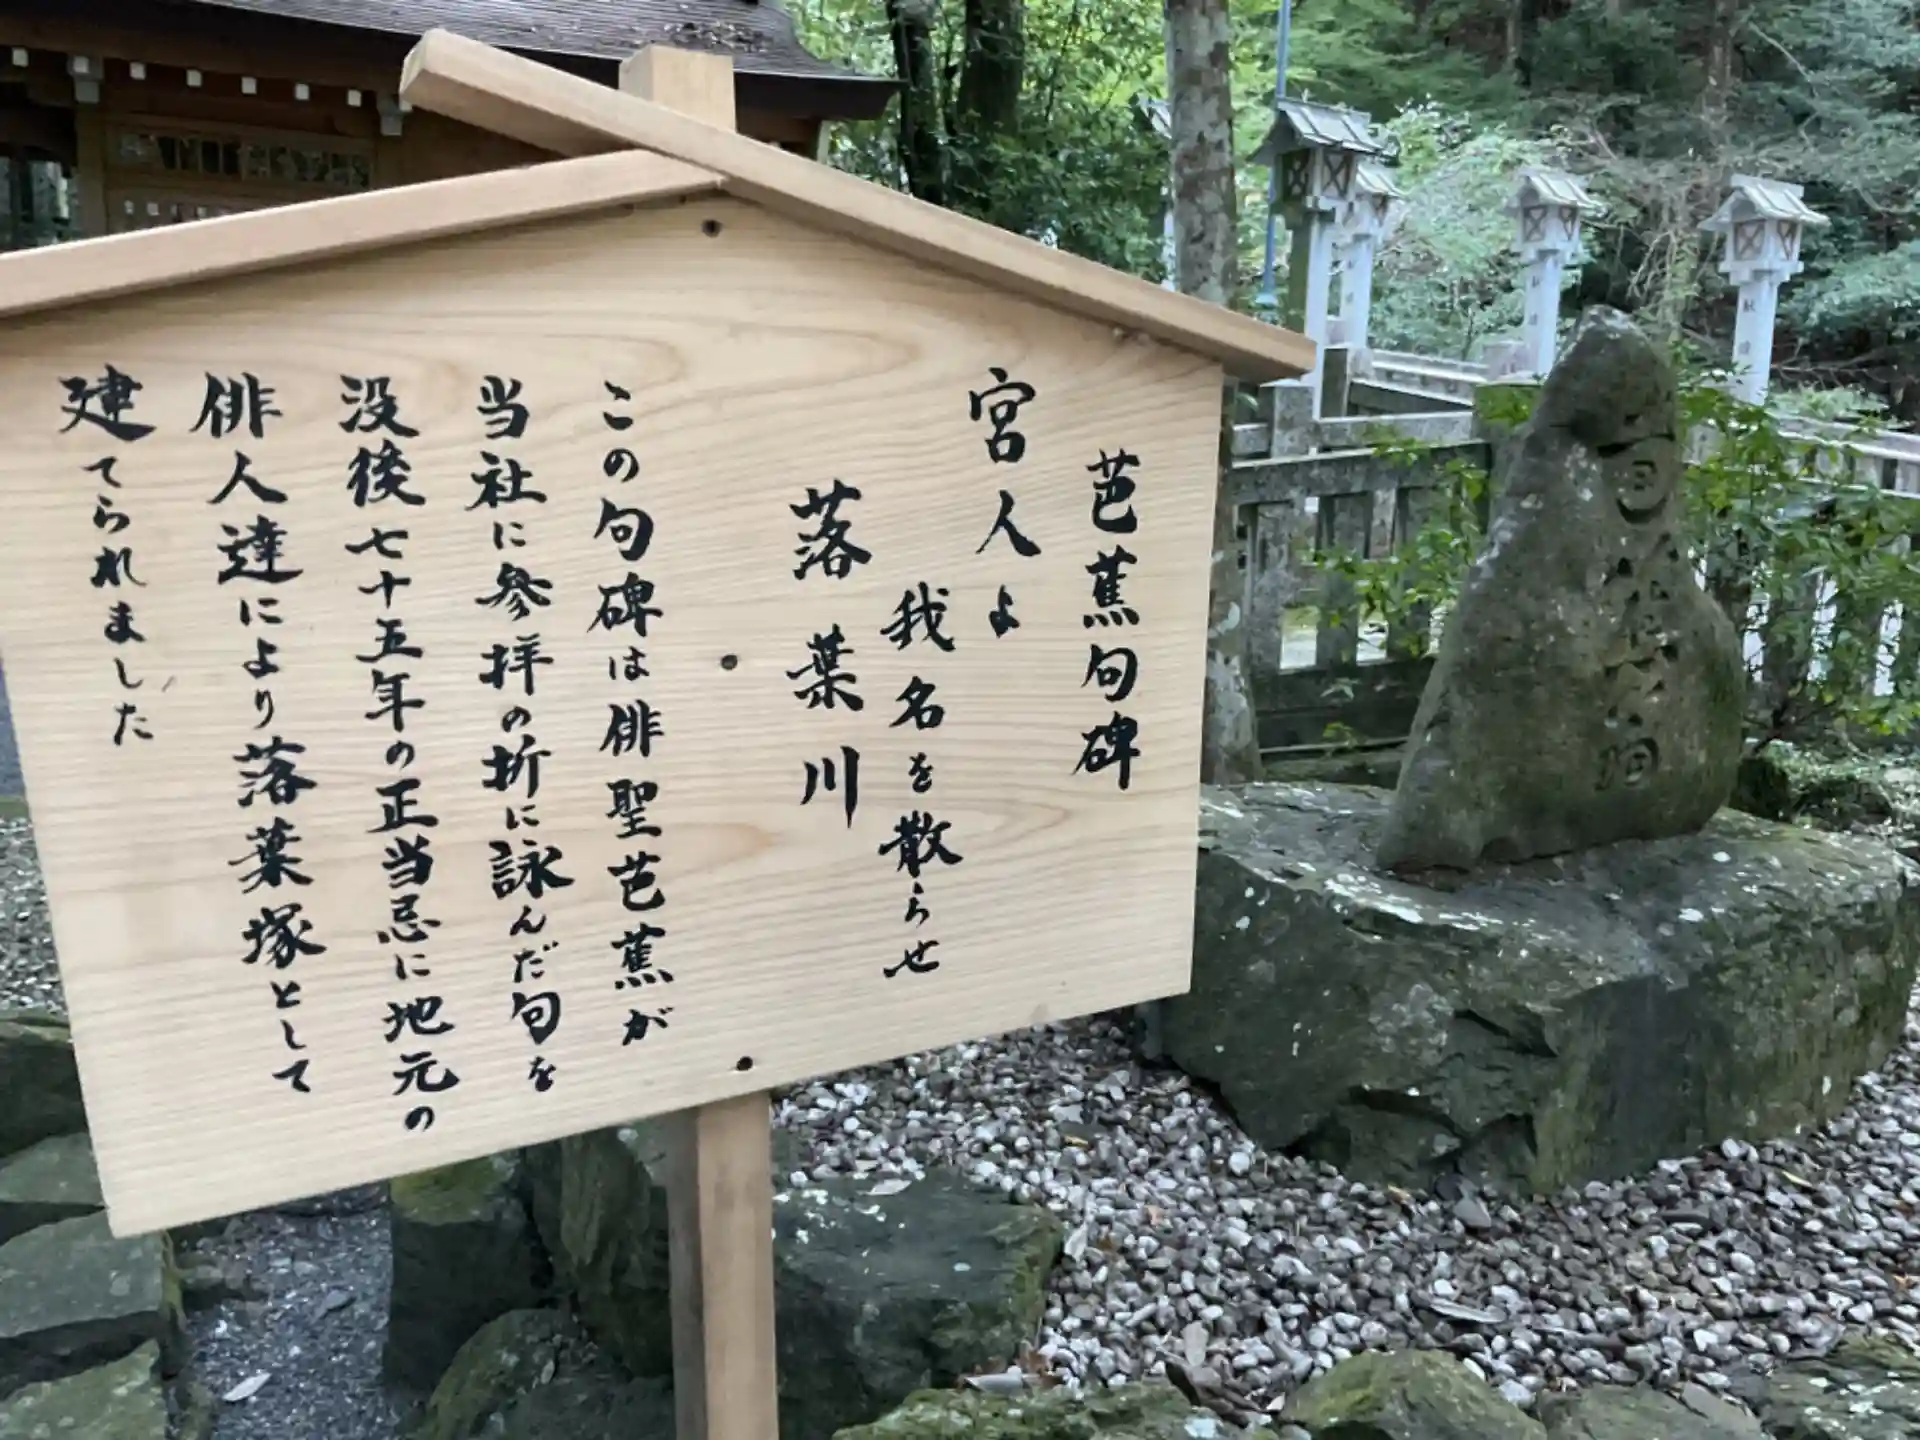 芭蕉句碑
宮人よ
我名を散らせ
落葉川
この句碑は俳聖芭蕉が
当社に参拝の折に詠んだ句を
没後七十五年の正当忌に地元の
俳人達により落葉塚として
建てられました